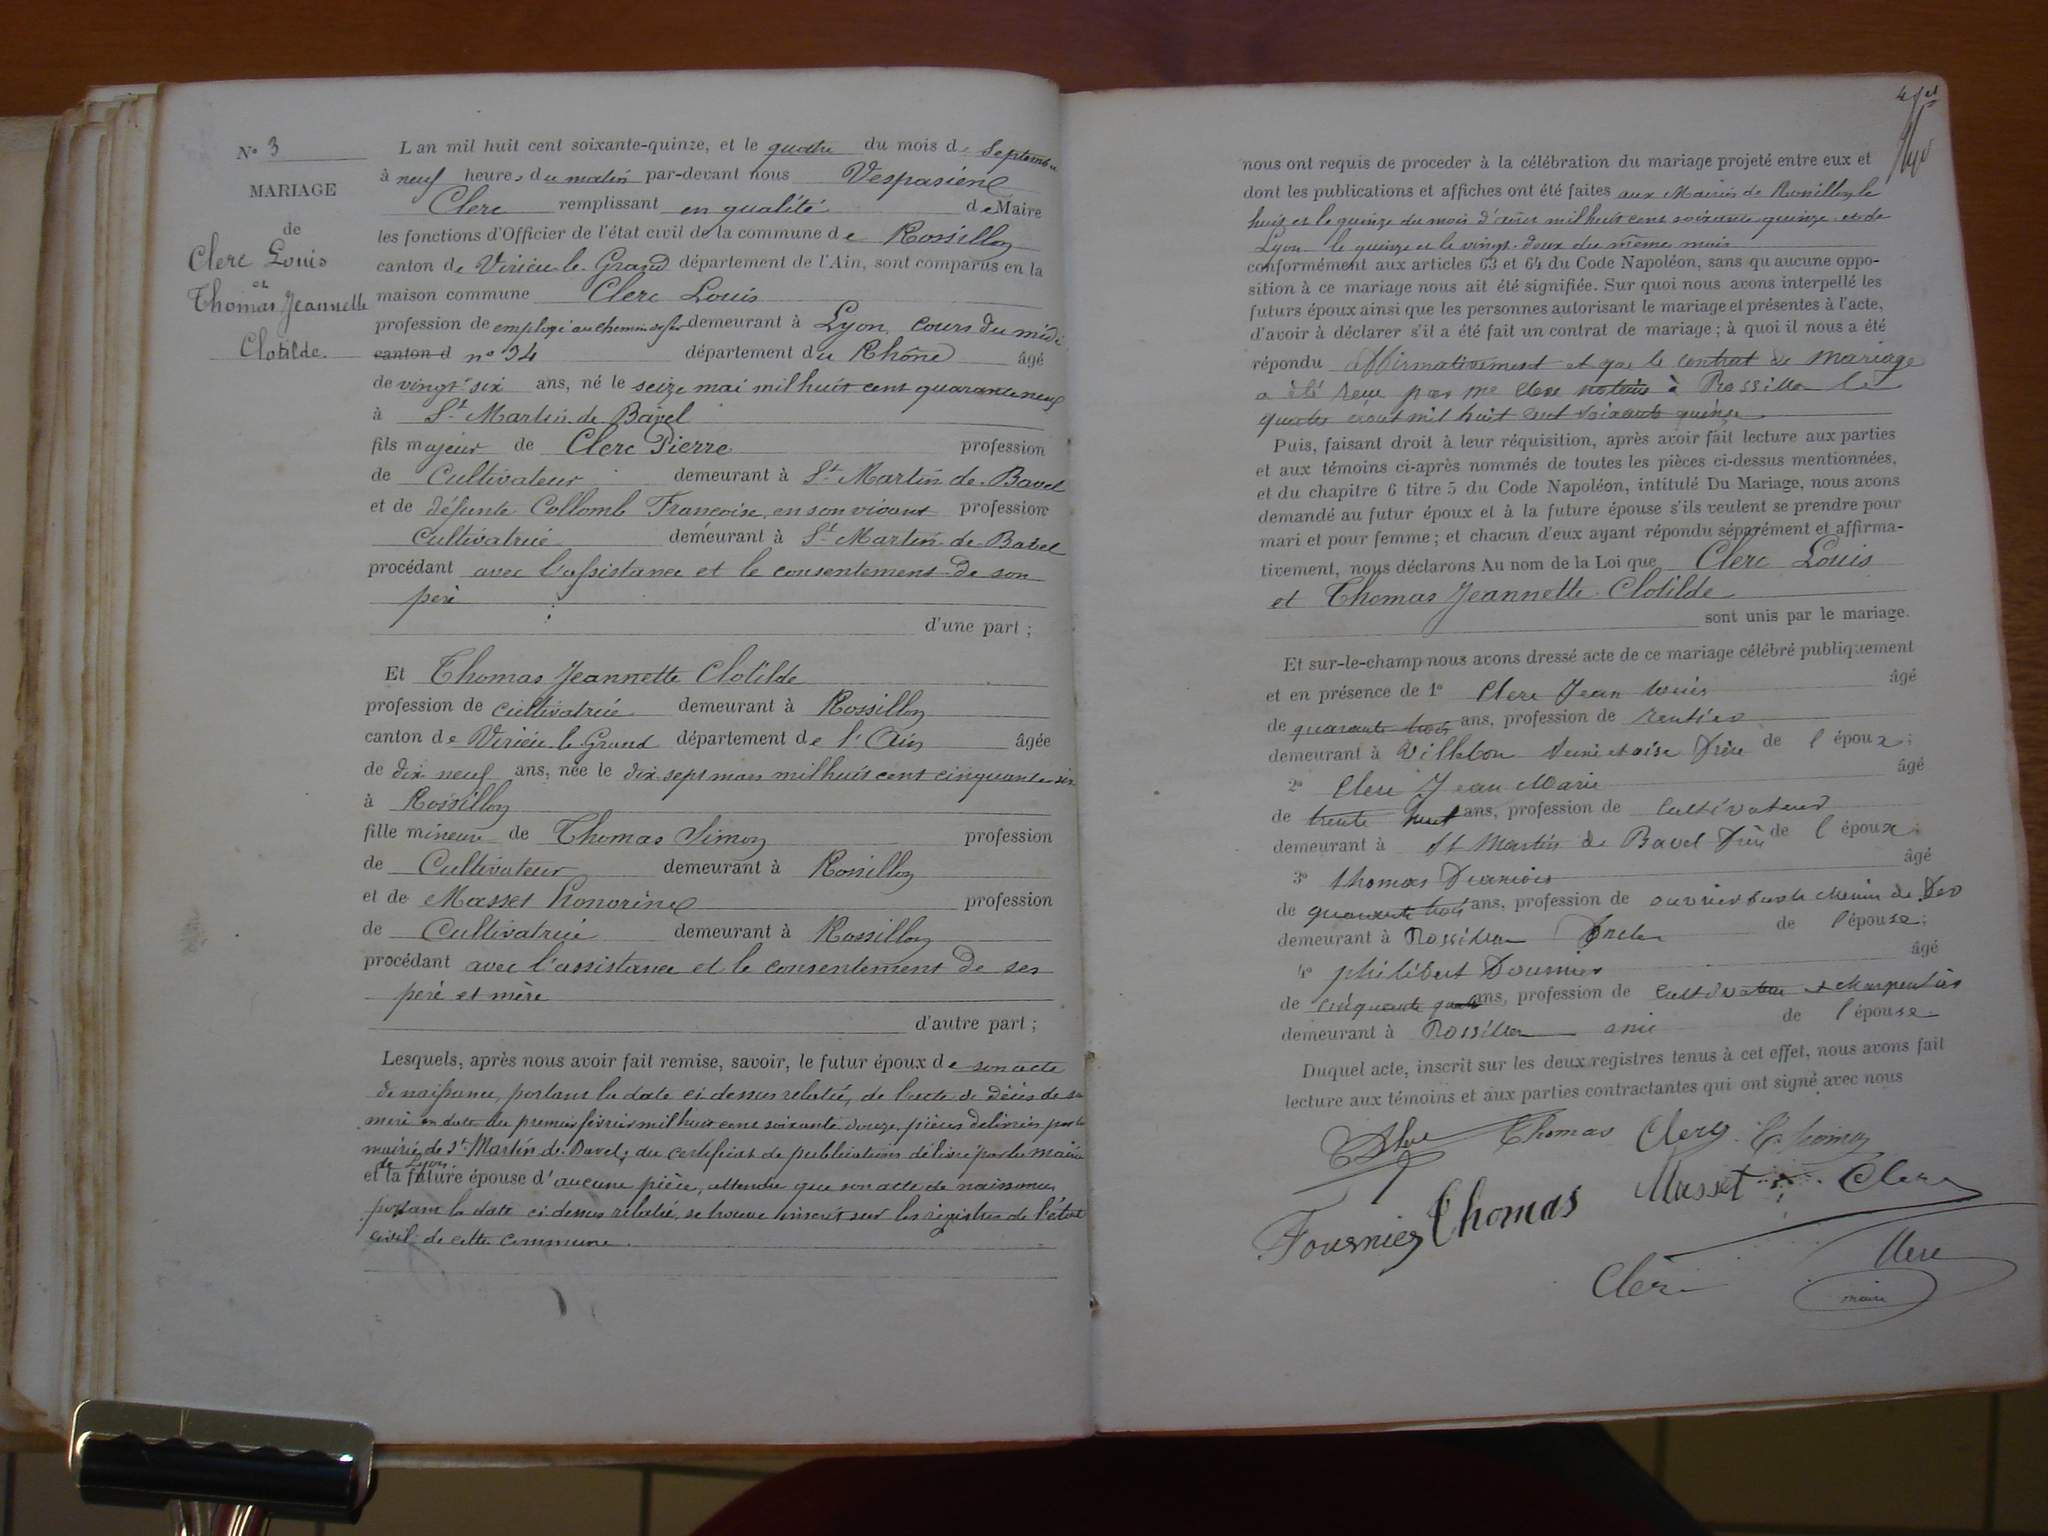 N° 3
MARIAGE
de
Clerc Louis
et
Thomas Jeannette
Clotilde.
L'an mil huit cent soixante-quinze, et le quatre du mois de Septembre
à neuf heures du matin par-devant nous Vespasien
Clerc remplissant en qualité de Maire
les fonctions d'Officier de l'état civil de la commune de Rossillon
canton de Virieu le Grand département de l'Ain, sont comparus en la
maison commune Clerc Louis
profession de employé au chemin de fer demeurant à Lyon, cours du midi
canton d n° 34 département du Rhône âgé
de vingt six ans, né le seize mai mil huit cent quarante neuf
à St Martin de Bavel
fils majeur de Clerc Pierre profession
de Cultivateur demeurant à St Martin de Bavel
et de défunte Collomb Francoise, en son vivant profession
Cultivatrice demeurant à St Martin de Bavel
procédant avec l'assistance et le consentement de son
père
d'une part ;
Et Thomas Jeannette Clotilde
profession de cultivatrice demeurant à Rossillon
canton de Virieu le Grand département de l'Ain âgée
de dix neuf ans, née le dix sept mars mil huit cent cinquante six
à Rossillon
fille mineure de Thomas Simon profession
de Cultivateur demeurant à Rossillon
et de Masset honorine profession
de Cultivatrice demeurant à Rossillon
procédant avec l'assistance et le consentement de ses
père et mère
d'autre part ;
Lesquels, après nous avoir fait remise, savoir, le futur époux de son acte
de naissance, portant la date ci dessus relatée, de l'acte de décès de sa
mère en date du premier février mil huit cent soixante douze, pièces délivrées par la
mairie de St Martin de Bavel, du certificat de publications délivré par la mairie
de Lyon.
et la future épouse d'aucune pièce, attendu que son acte de naissance,
portant la date ci dessus relatée, se trouve inscrit sur les registres de l'état
civil de cette commune.
nous ont requis de proceder à la célébration du mariage projeté entre eux et
dont les publications et affiches ont été faites aux Mairies de Rossillon le
huit et le quinze du mois d'août mil huit cent soixante quinze et de
Lyon le quinze et le vingt-deux du même mois
conformément aux articles 63 et 64 du Code Napoléon, sans qu'aucune oppo-
sition à ce mariage nous ait été signifiée. Sur quoi nous avons interpellé les
futurs époux ainsi que les personnes autorisant le mariage et présentes à l'acte,
d'avoir à déclarer s'il a été fait un contrat de mariage ; à quoi il nous a été
répondu affirmativement et que le contrat de mariage
a été recu par me Clerc notaire à Rossillon le
quatre août mil huit cent soixante quinze
Puis, faisant droit à leur réquisition, après avoir fait lecture aux parties
et aux témoins ci-après nommés de toutes les pièces ci-dessus mentionnées,
et du chapitre 6 titre 5 du Code Napoléon, intitulé Du Mariage, nous avons
demandé au futur époux et à la future épouse s'ils veulent se prendre pour
mari et pour femme ; et chacun d'eux ayant répondu séparément et affirma-
tivement, nous déclarons Au nom de la Loi que Clerc Louis
et Thomas Jeannette Clotilde
sont unis par le mariage.
Et sur-le-champ nous avons dressé acte de ce mariage célébré publiquement
et en présence de 1° Clerc Jean Louis âgé
de quarante trois ans, profession de rentier
demeurant à Villebon Seine et oise frère de l'époux ;
2° Clerc Jean Marie âgé
de trente huit ans, profession de cultivateur
demeurant à St Martin de Bavel frère de l'époux ;
3° thomas Francois âgé
de quarante trois ans, profession de ouvrier sur le chemin de fer
demeurant à Rossillon oncle de l'épouse ;
4° philibert Fournier âgé
de cinquante quatre ans, profession de cultivateur et charpentier
demeurant à Rossillon ami de l'épouse.
Duquel acte, inscrit sur les deux registres tenus à cet effet, nous avons fait
lecture aux témoins et aux parties contractantes qui ont signé avec nous
Thomas Clerc C. Thomas
Fournier Thomas Masset Clerc
Clerc Clerc
maire